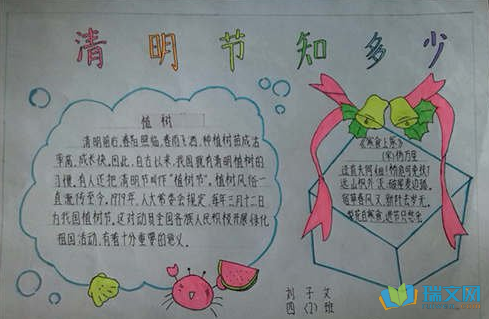 清明节知多少
植树
清明前后,春阳照临,春雨飞洒,种植树苗成活
率高,成长快。因此,自古以来,我国就有清明植树的
习惯。有人还把清明节叫作“植树节”。植树风俗一
直流传至今。1979年,人大常委会规定,每年三月十二日
为我国植树节。这对动员全国各族人民积极开展绿化
祖国活动,有着十分重要的意义。
《寒食上冢》
(宋)杨万里
迳直夫何细!桥危可免扶?
远山枫外淡,破屋麦边孤。
宿草春风又,新阡去岁无。
梨花自寒食,进节只愁余。
刘子文
四(7)班
瑞文网